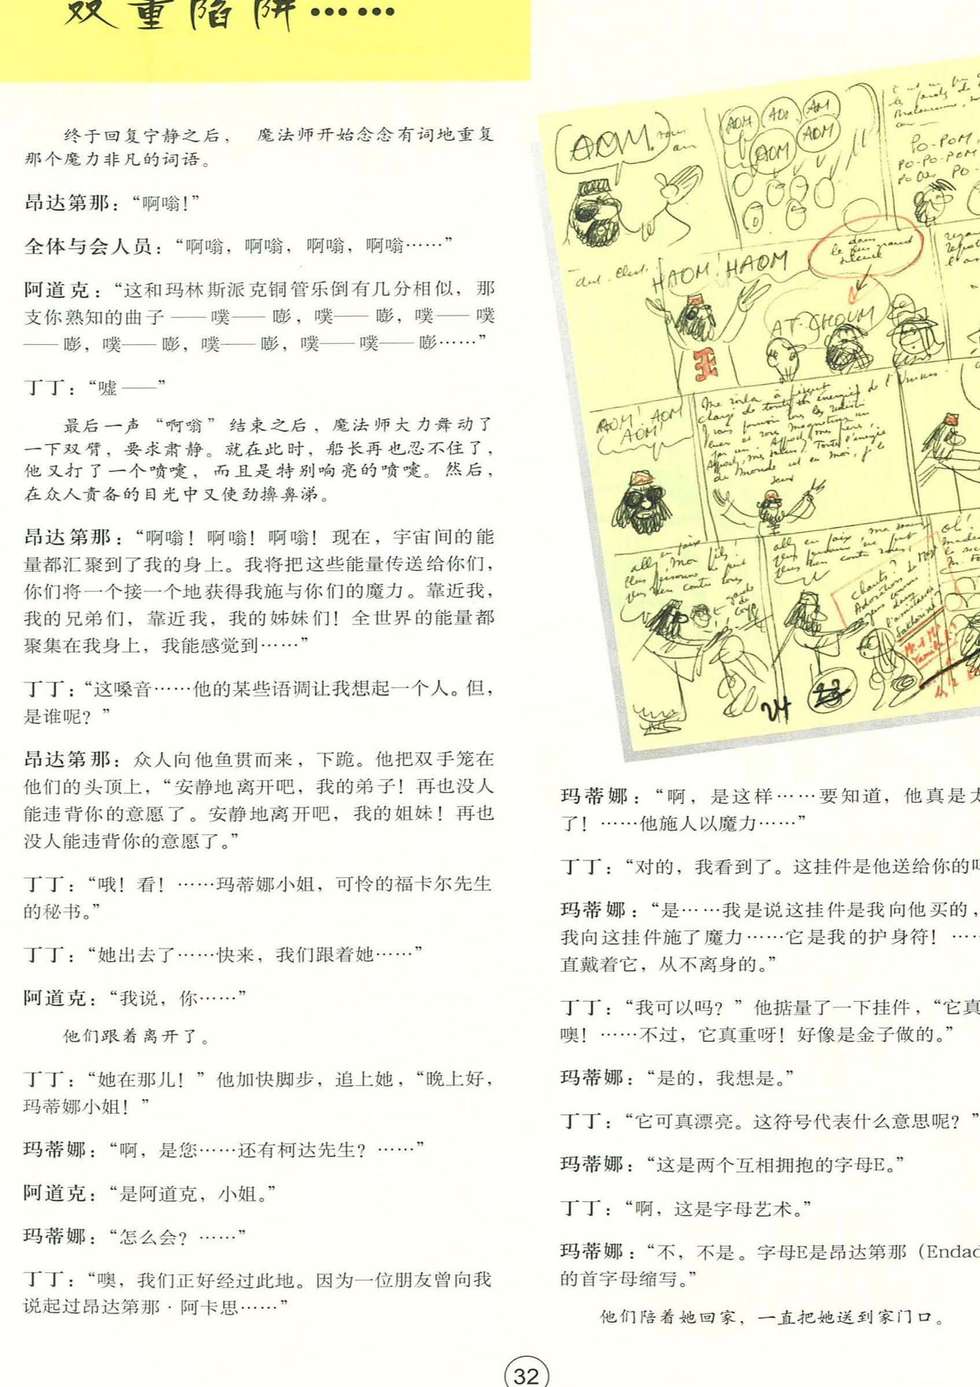 双重陷阱……
终于回复宁静之后， 魔法师开始念念有词地重复
那个魔力非凡的词语。
昂达第那：“啊嗡！”
全体与会人员：“啊嗡，啊嗡，啊嗡，啊嗡……”
阿道克：“这和玛林斯派克铜管乐倒有几分相似，那
支你熟知的曲子——噗——嘭，噗——嘭，噗——噗
——嘭，噗——嘭，噗——嘭，噗——噗——嘭……”
丁丁：“嘘——”
最后一声“啊嗡”结束之后，魔法师大力舞动了
一下双臂，要求肃静。就在此时，船长再也忍不住了，
他又打了一个喷嚏，而且是特别响亮的喷嚏。然后，
在众人责备的目光中又使劲擤鼻涕。
昂达第那：“啊嗡！啊嗡！啊嗡！现在，宇宙间的能
量都汇聚到了我的身上。我将把这些能量传送给你们，
你们将一个接一个地获得我施与你们的魔力。靠近我，
我的兄弟们，靠近我，我的姊妹们！全世界的能量都
聚集在我身上，我能感觉到……”
丁丁：“这嗓音……他的某些语调让我想起一个人。但，
是谁呢？”
昂达第那：众人向他鱼贯而来，下跪。他把双手笼在
他们的头顶上，“安静地离开吧，我的弟子！再也没人
能违背你的意愿了。安静地离开吧，我的姐妹！再也
没人能违背你的意愿了。”
丁丁：“哦！看！……玛蒂娜小姐，可怜的福卡尔先生
的秘书。”
丁丁：“她出去了……快来，我们跟着她……”
阿道克：“我说，你……”
他们跟着离开了。
丁丁：“她在那儿！”他加快脚步，追上她，“晚上好，
玛蒂娜小姐！”
玛蒂娜：“啊，是您……还有柯达先生？……”
阿道克：“是阿道克，小姐。”
玛蒂娜：“怎么会？……”
丁丁：“噢，我们正好经过此地。因为一位朋友曾向我
说起过昂达第那·阿卡思……”
AOM!
AOM
AOM
AOM
AOM
PO-POM
PO-PO-POM
HAOM! HAOM
dans
le plus grand
silence
AT-CHOUM
AOM! AOM
AOM!
24
玛蒂娜：“啊，是这样……要知道，他真是太
了！……他施人以魔力……”
丁丁：“对的，我看到了。这挂件是他送给你的吗
玛蒂娜：“是……我是说这挂件是我向他买的，
我向这挂件施了魔力……它是我的护身符！……
直戴着它，从不离身的。”
丁丁：“我可以吗？”他掂量了一下挂件，“它真
噢！……不过，它真重呀！好像是金子做的。”
玛蒂娜：“是的，我想是。”
丁丁：“它可真漂亮。这符号代表什么意思呢？”
玛蒂娜：“这是两个互相拥抱的字母E。”
丁丁：“啊，这是字母艺术。”
玛蒂娜：“不，不是。字母E是昂达第那（Endad
的首字母缩写。”
他们陪着她回家，一直把她送到家门口。
32